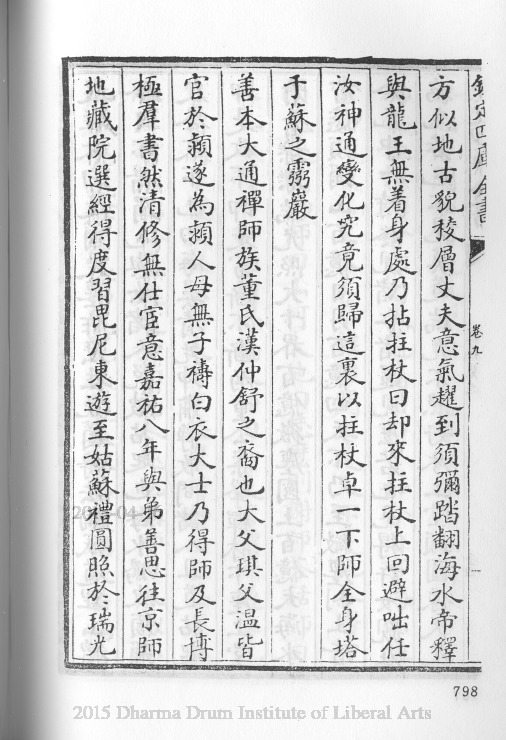 欽定四庫全書
卷九
方似地古貌稜層丈夫意氣趯到須彌踏翻海水帝釋
與龍王無着身處乃拈拄杖曰却來拄杖上回避咄任
汝神通變化究竟須歸這裏以拄杖卓一下師全身塔
于蘇之靈巖
善本大通禪師族董氏漢仲舒之裔也大父琪父溫皆
官於潁遂為潁人母無子禱白衣大士乃得師及長博
極羣書然清修無仕宦意嘉祐八年與弟善思往京師
地藏院選經得度習毘尼東遊至姑蘇禮圓照於瑞光
798
2015 Dharma Drum Institute of Liberal Arts